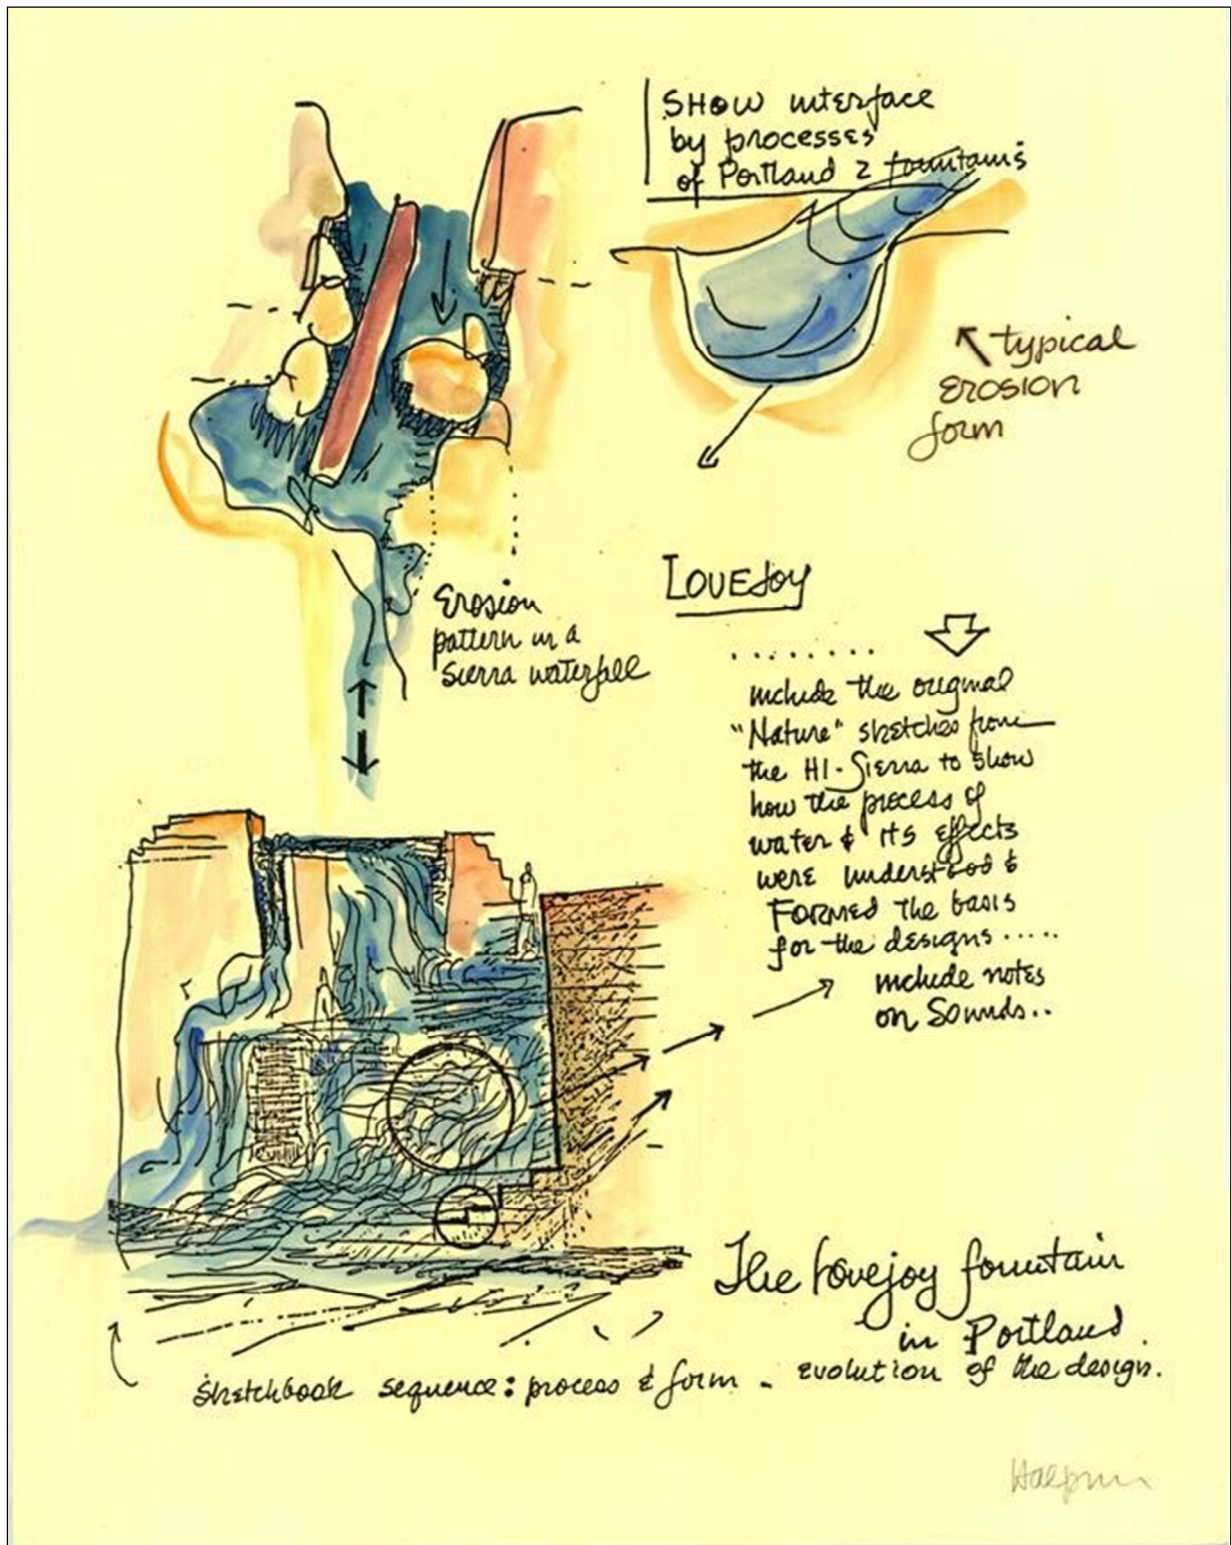 SHOW interface
by processes
of Portland 2 fountains
typical
erosion
form
Erosion
pattern in a
Sierra waterfall
LOVEJOY
........
include the original
"Nature" sketches from
the HI-Sierra to show
how the process of
water & its effects
were understood &
Formed the basis
for the designs.....
include notes
on Sounds..
The Lovejoy fountain
in Portland.
sketchbook sequence: process & form - evolution of the design.
Halprin